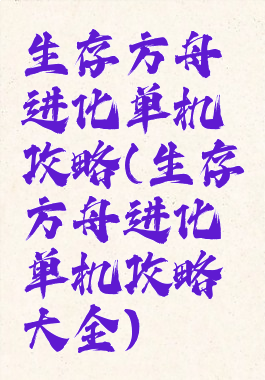 生存方舟
进化单机
攻略(生存
方舟进化
单机攻略
大全)